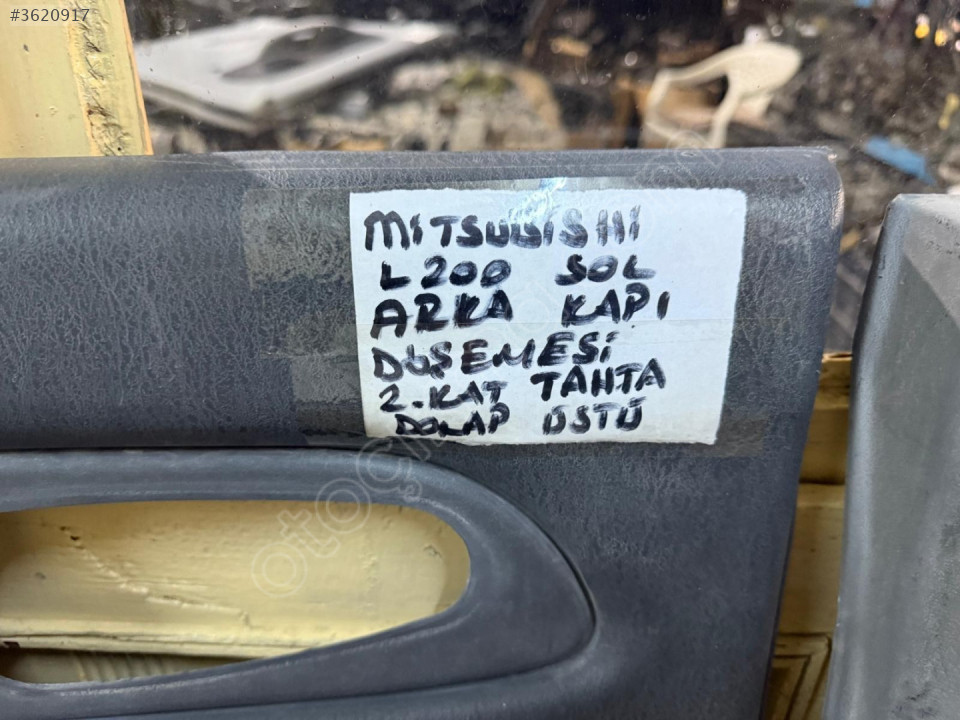 #3620917
MITSUBISHI
L200 SOL
ARKA KAPI
DÖŞEMESİ
2.KAT TAHTA
DOLAP ÜSTÜ